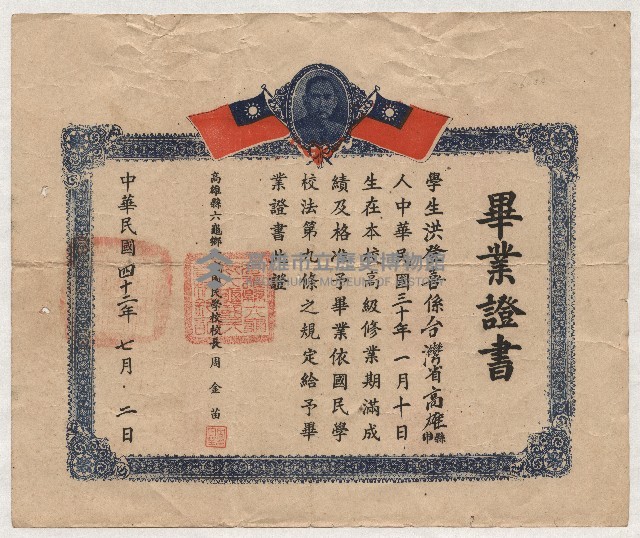 畢業證書
學生洪發喜係台灣省高雄縣市
人中華民國三十年一月十日
生在本校高級修業期滿成
績及格准予畢業依國民學
校法第九條之規定給予畢
業證書此證
高雄縣六龜鄉 民學校校長 周金苗
中華民國四十二年七月·二日
高雄市立歷史博物館
KAOHSIUNG MUSEUM OF HISTORY